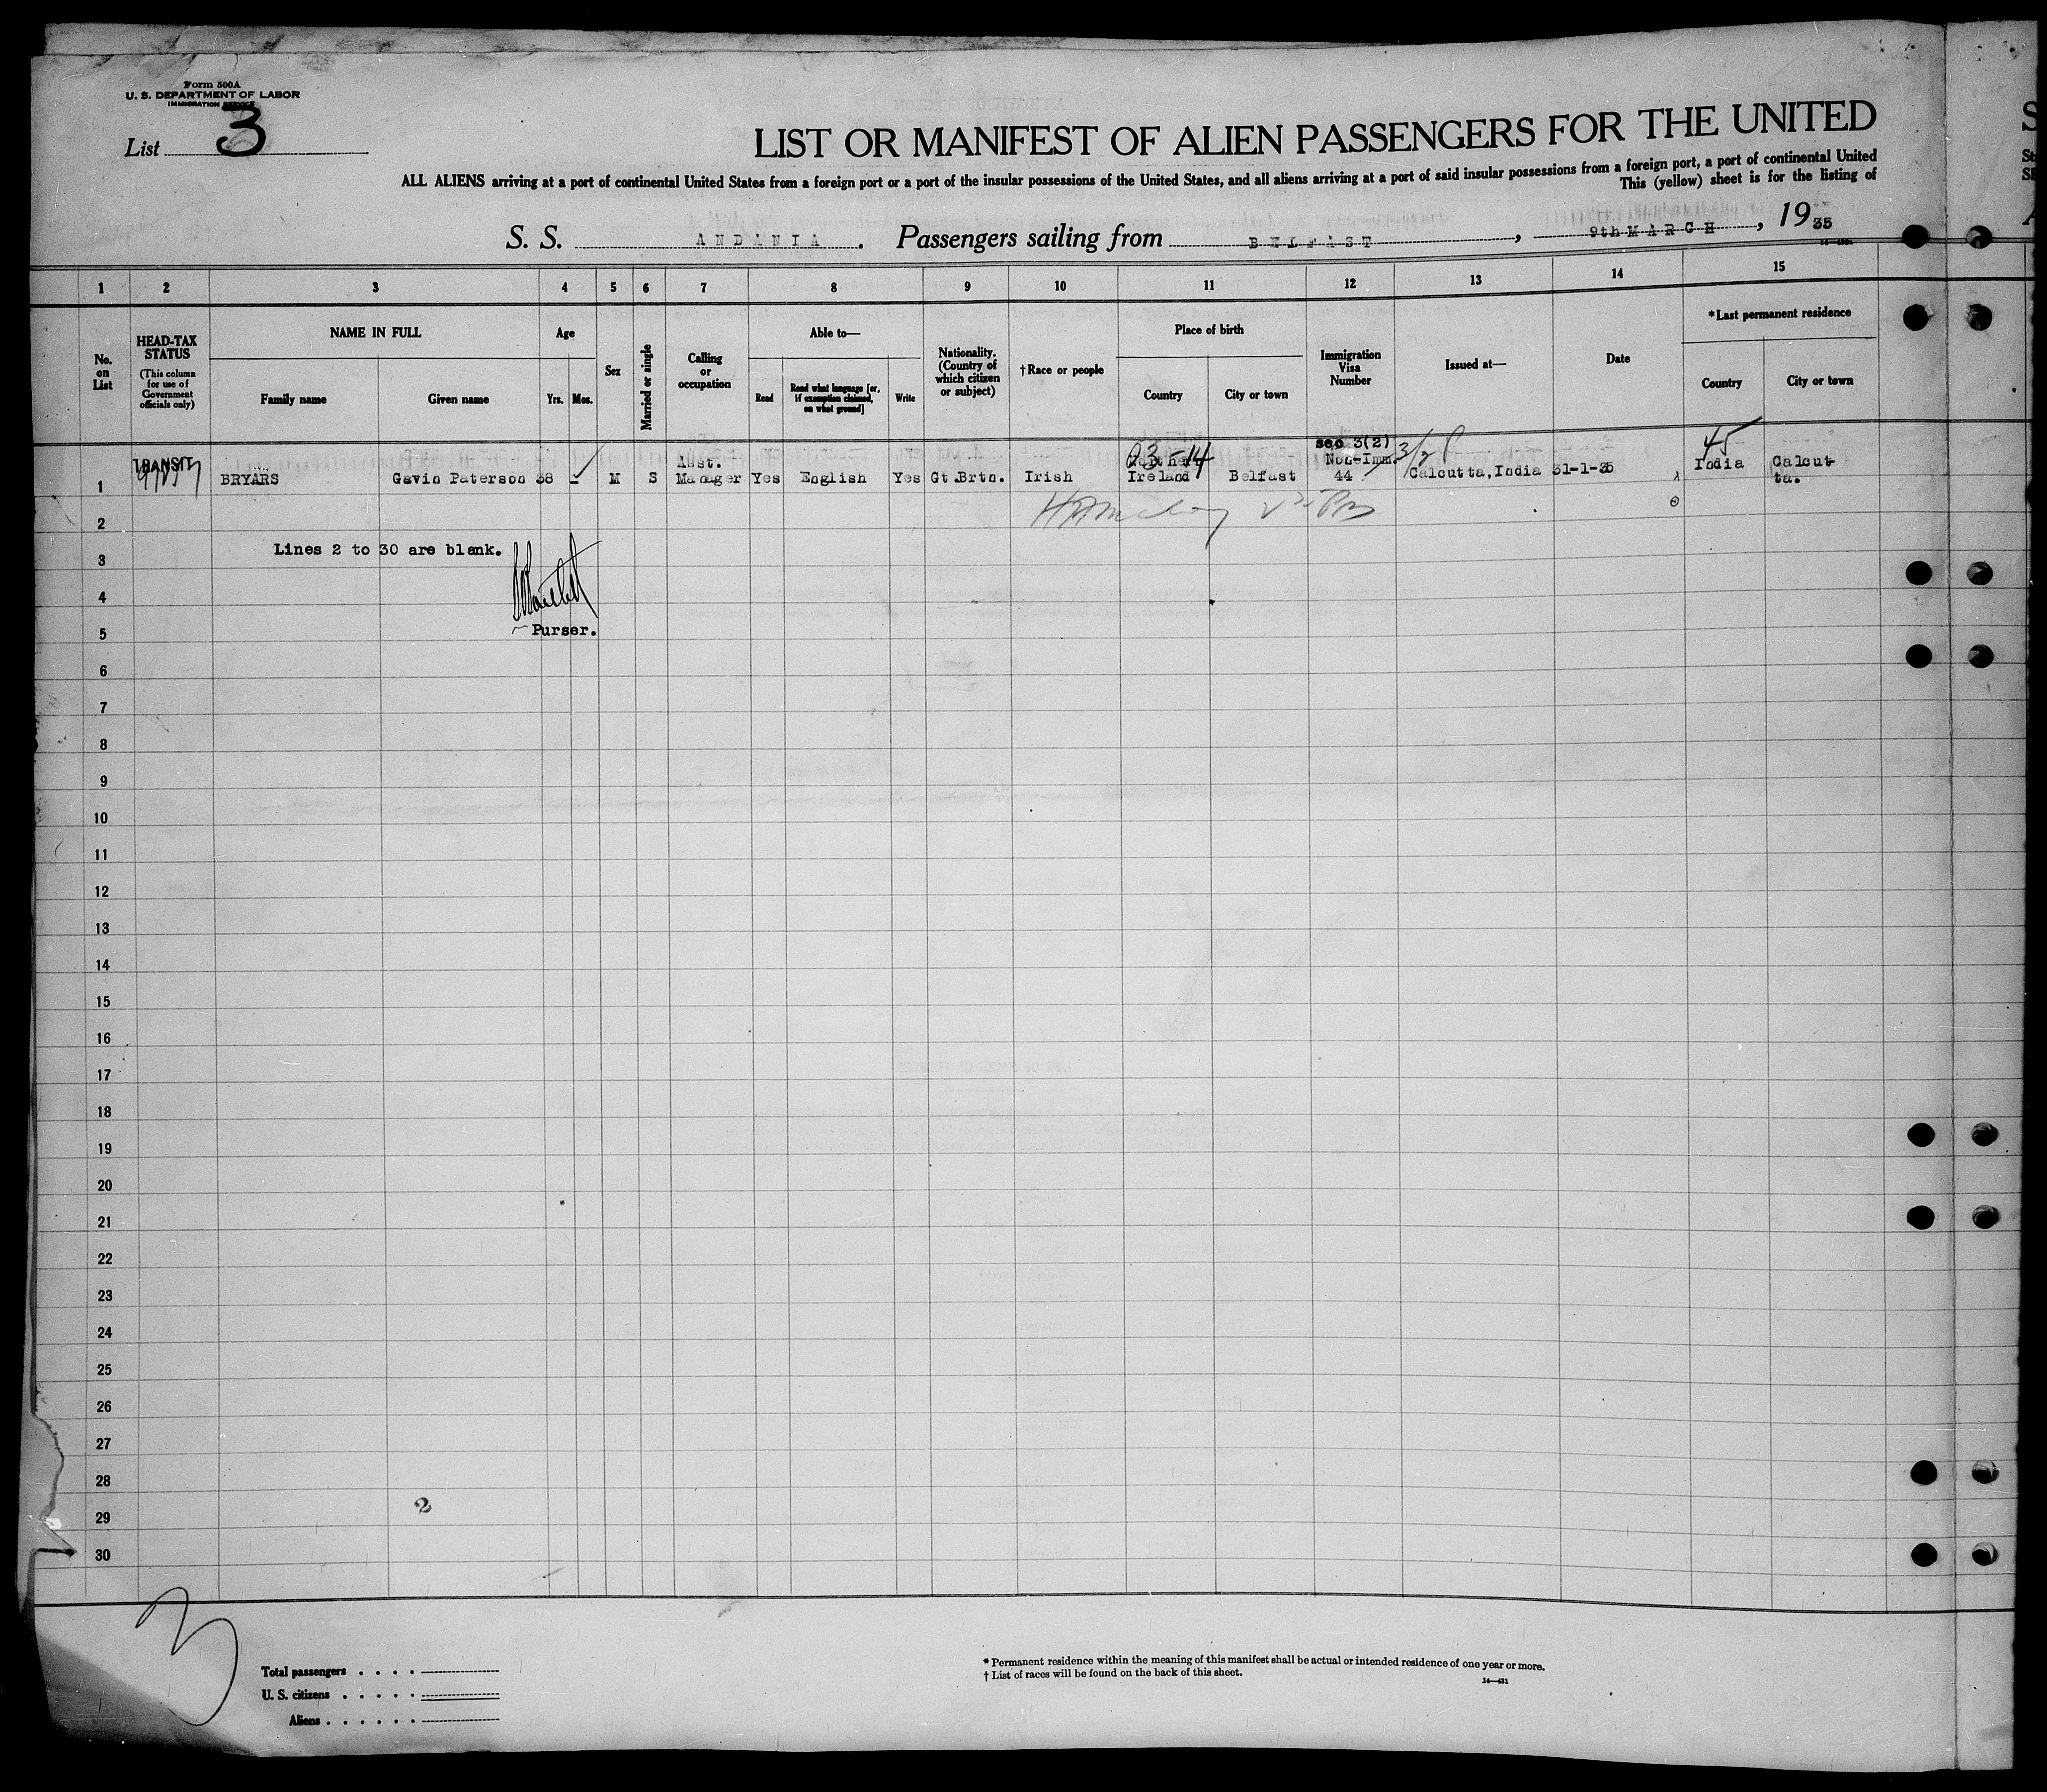 Form 500A
U. S. DEPARTMENT OF LABOR
IMMIGRATION SERVICE
List 3
LIST OR MANIFEST OF ALIEN PASSENGERS FOR THE UNITED
ALL ALIENS arriving at a port of continental United States from a foreign port or a port of the insular possessions of the United States, and all aliens arriving at a port of said insular possessions from a foreign port, a port of continental United
This (yellow) sheet is for the listing of
S. S. ANDANIA. Passengers sailing from BELFAST, 9th MARCH, 1935
1 2 3 4 5 6 7 8 9 10 11 12 13 14 15
No. on List
HEAD-TAX STATUS
(This column for use of Government officials only)
NAME IN FULL
Family name
Given name
Age
Yrs.
Mos.
Sex
Married or single
Calling or occupation
Able to—
Read
Read what language [or, if exemption claimed, on what ground]
Write
Nationality. (Country of which citizen or subject)
†Race or people
Place of birth
Country
City or town
Immigration Visa Number
Issued at—
Date
*Last permanent residence
Country
City or town
1 TRANSIT BRYARS Gavin Paterson 38 - M S Asst. Manager Yes English Yes Gt.Brtn. Irish Ireland Belfast sec 3(2) Non-Imm. 44 Calcutta, India 31-1-35 45 India Calcut-ta.
2
Lines 2 to 30 are blank.
3
4
5 Purser.
6
7
8
9
10
11
12
13
14
15
16
17
18
19
20
21
22
23
24
25
26
27
28
2
29
30
3
Total passengers . . . .
U. S. citizens . . . . .
Aliens . . . . . .
* Permanent residence within the meaning of this manifest shall be actual or intended residence of one year or more.
† List of races will be found on the back of this sheet.